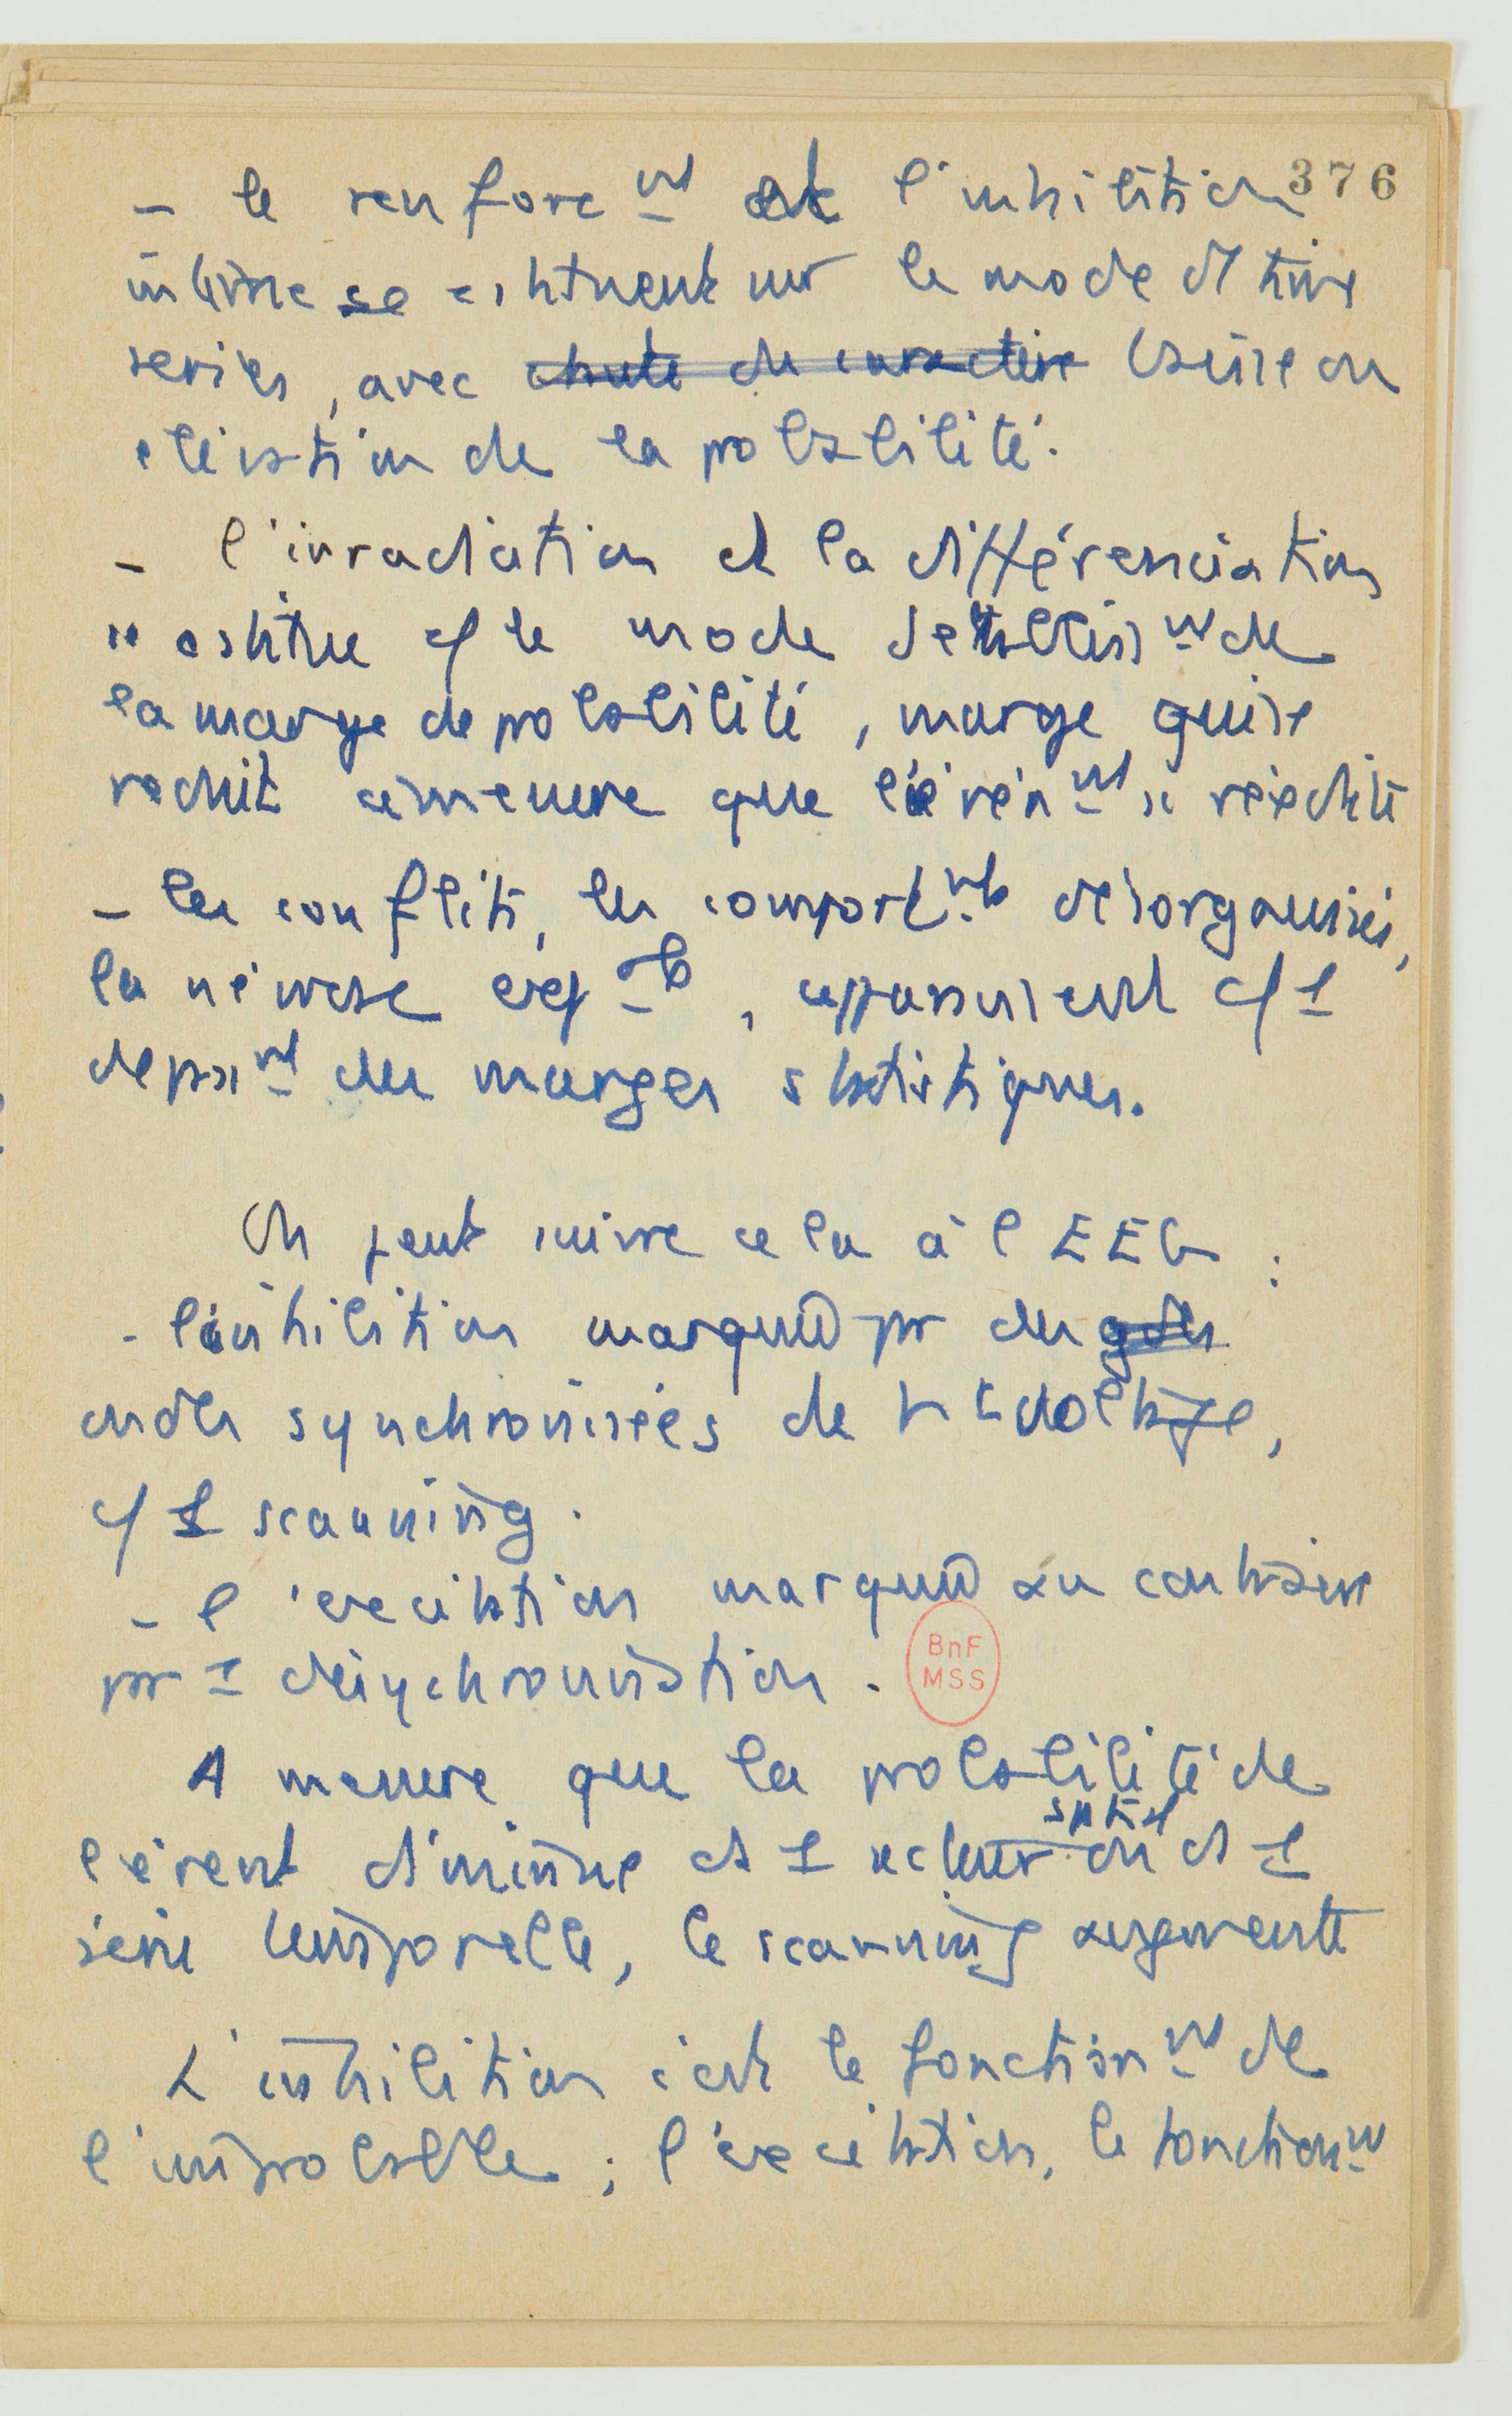 376
- le renforcnt et l'inhibition
interne se constituent sur le mode d time
series, avec chute du caractère baisse ou
élévation de la probabilité.
- l'irradiation et la différenciation
se constitue c/ le mode d'établissnt de
la marge de probabilité, marge qui se
réduit à mesure que l'événnt se répète
- les conflits, les comportnts désorganisés,
la névrose, apparaissent c/ 1
dépasnt des marges statistiques.
On peut suivre cela à l'EEG :
- l'inhibition marquée pr des
ondes synchronisées de ht voltage,
c/ 1 scanning.
- l'excitation marquée au contraire
pr 1 désynchronisation.
BnF
MSS
A mesure que la probabilité de
l'évent diminue ds 1 secteur spatial ou ds 1
série temporelle, le scanning augmente
L'inhibition c'est le fonctionnt de
l'improbable ; l'excitation, le fonctionnt